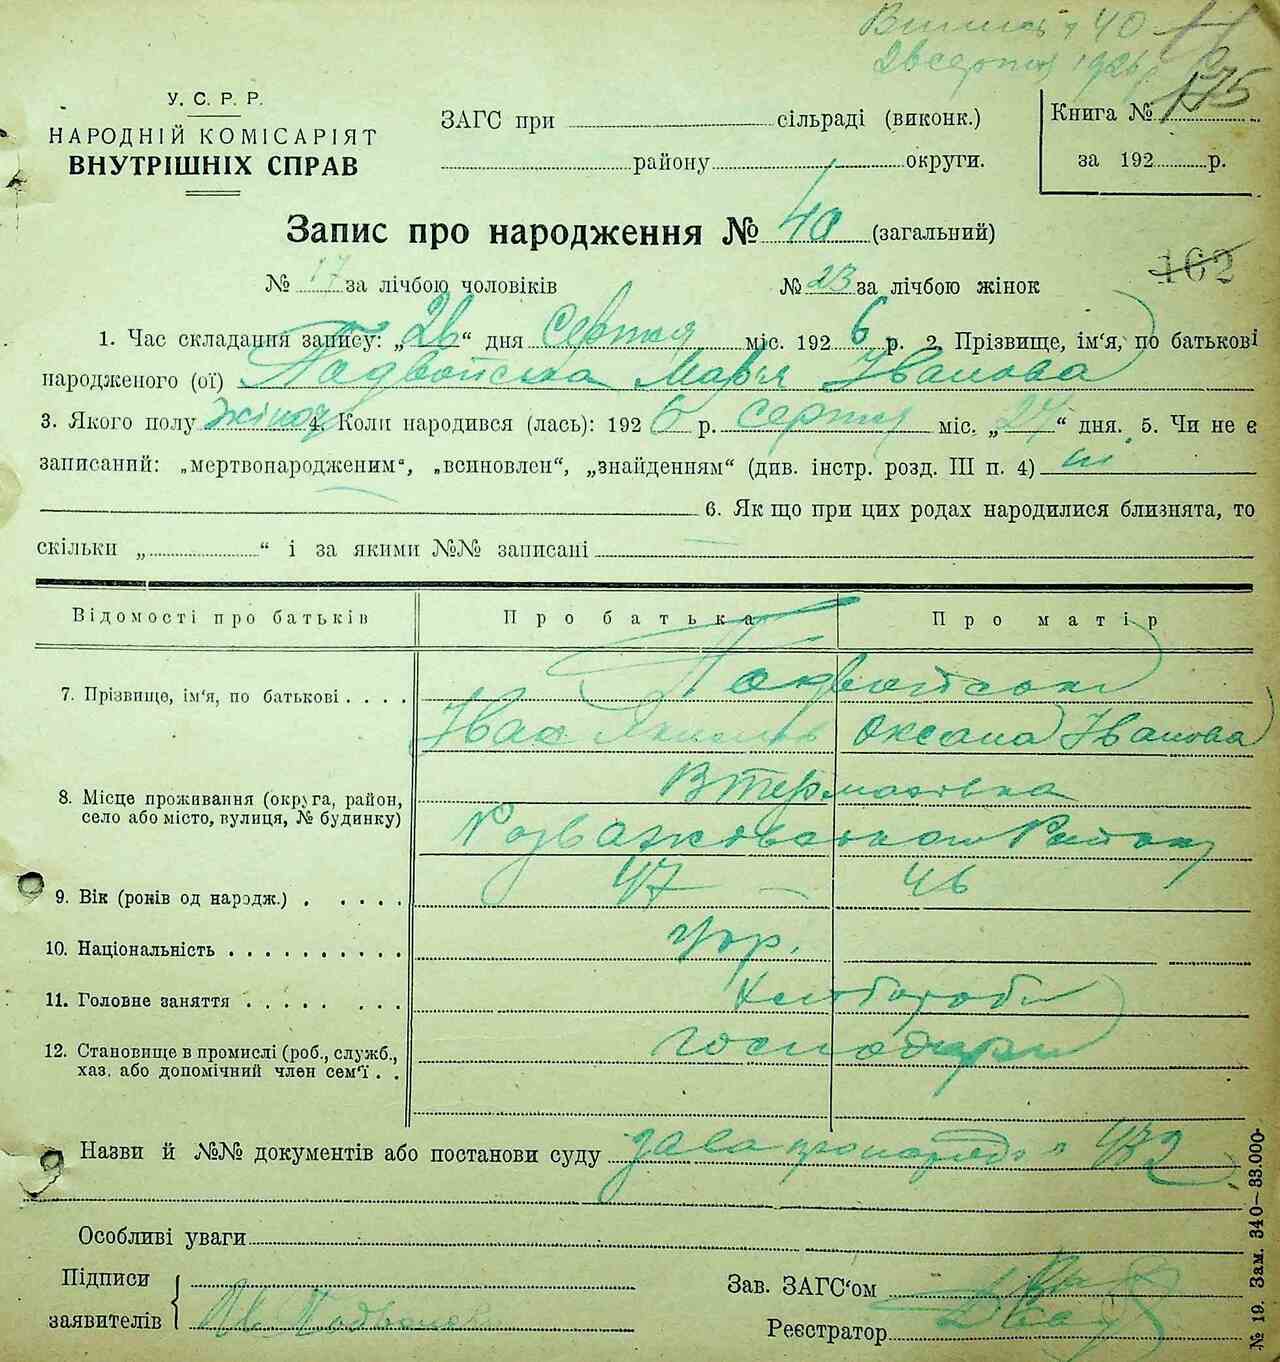 Випись 40
26 серпня 1926 р.
175
У. С. Р. Р.
НАРОДНІЙ КОМІСАРІЯТ
ВНУТРІШНІХ СПРАВ
ЗАГС при сільраді (виконк.)
району округи.
Книга №
за 192 р.
Запис про народження № 40 (загальний)
№ 17 за лічбою чоловіків № 23 за лічбою жінок
162
1. Час складання запису: „26“ дня серпня міс. 1926 р. 2. Прізвище, ім'я, по батькові
народженого (ої) Подвойська Мар'я Іванова
3. Якого полу жіноч 4. Коли народився (лась): 1926 р. серпня міс. „24“ дня. 5. Чи не є
записаний: „мертвонародженим“, „всиновлен“, „знайденням“ (див. інстр. розд. III п. 4) ні
6. Як що при цих родах народилися близнята, то
скільки „ “ і за якими №№ записані
Відомості про батьків Про батька Про матір
7. Прізвище, ім'я, по батькові Подвойські
Іван Якимів Оксана Іванова
8. Місце проживання (округа, район,
село або місто, вулиця, № будинку)
Термахівка
Розважівського Району
9. Вік (років од народж.) 47 46
10. Національність Укр.
11. Головне заняття Хлібороби
12. Становище в промислі (роб., служб.,
хаз. або допомічний член сем'ї
господарі
Назви й №№ документів або постанови суду № 472
Особливі уваги
Підписи
заявителів
Ів Подвойськ
Зав. ЗАГС'ом
Реєстратор
№ 19. Зам. 340—33.000-